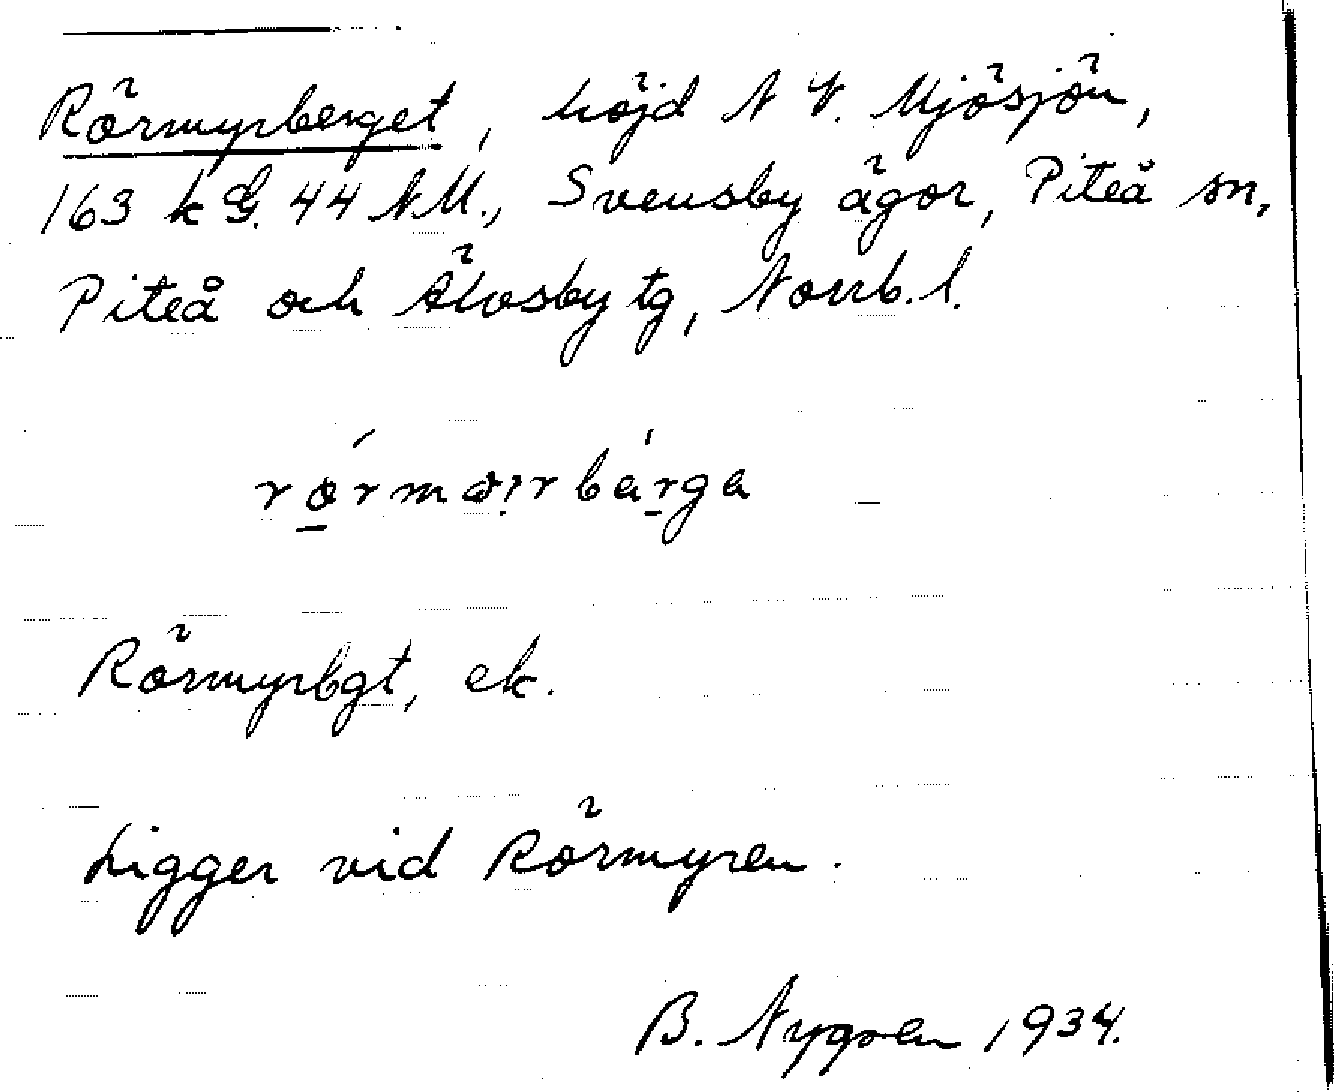 Rörmyrberget, höjd N V. Mjösjön,
163 k G. 44 N M., Svensby ägor, Piteå sn,
Piteå och Älvsby tg, Norrb. l.
Rörmyrbgt, ek.
Ligger vid Rörmyren.
B. Nygren 1934.